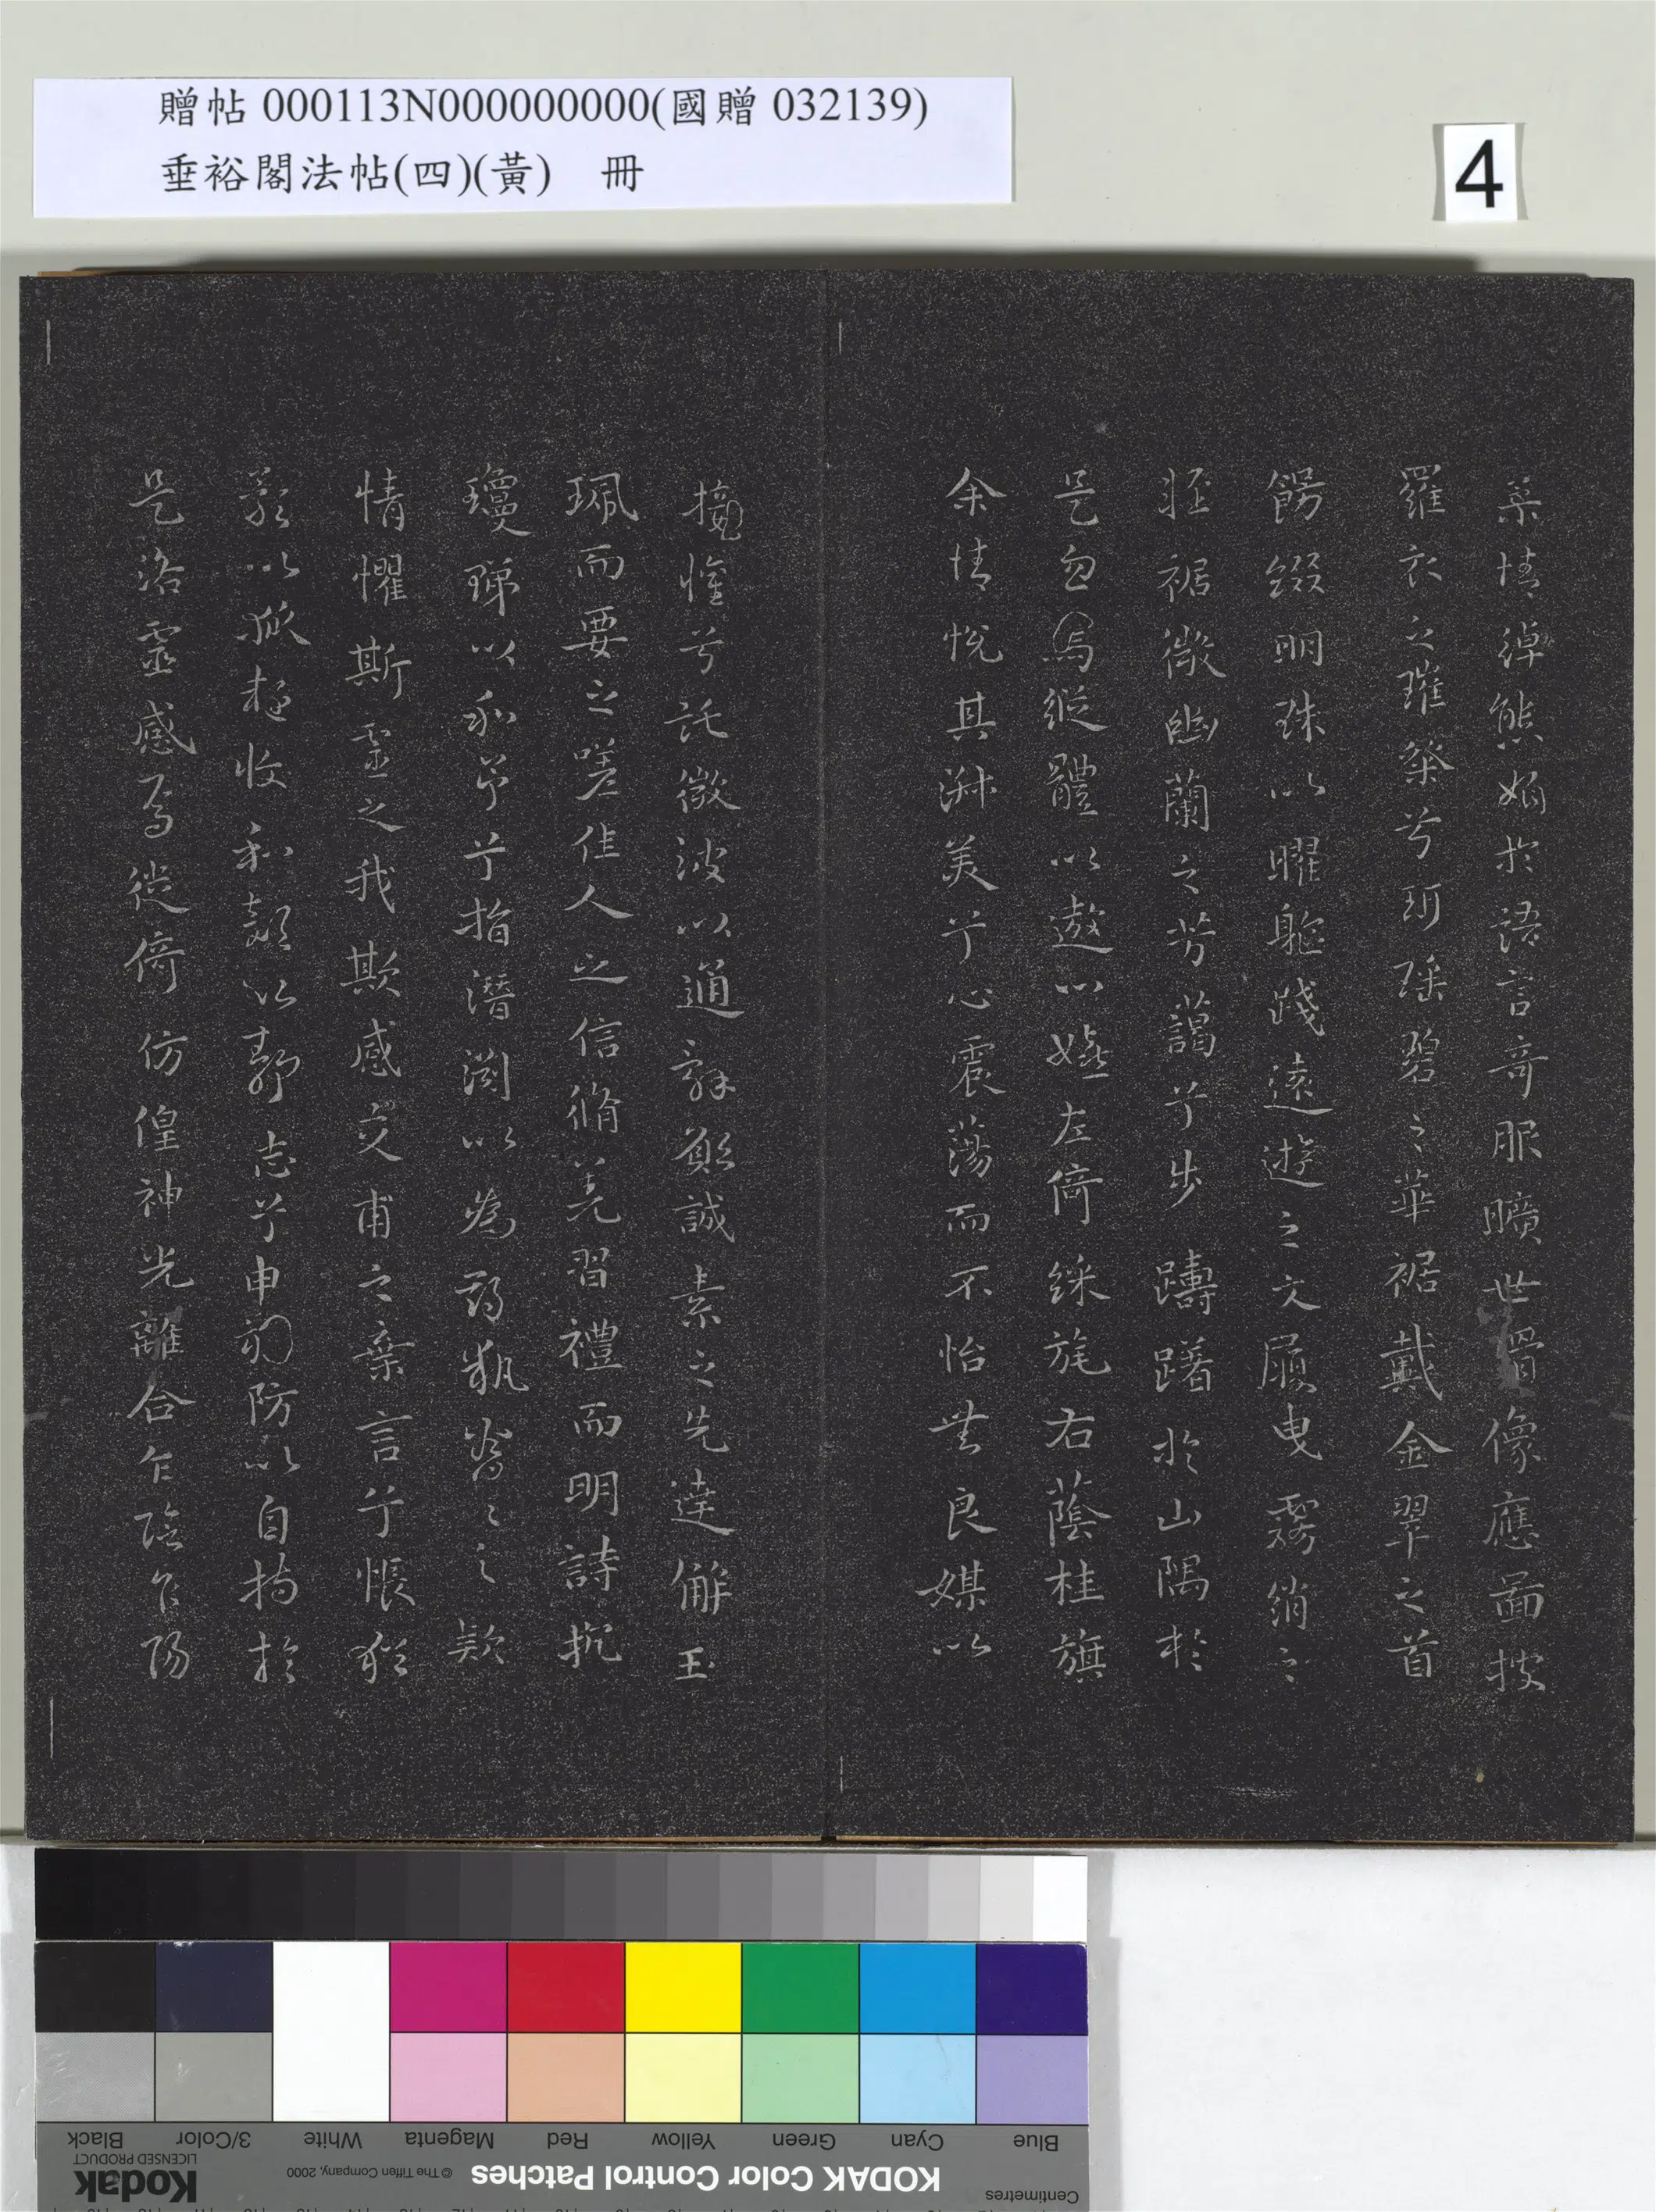 贈帖 000113N000000000(國贈 032139)
垂裕閣法帖(四)(黃) 冊
4
柔情綽態媚於語言奇服曠世骨像應圖披
羅衣之璀粲兮珥瑤碧之華裾戴金翠之首
餙綴明珠以曜軀踐遠遊之文履曳霧綃之
輕裾微幽蘭之芳藹兮步躊躇於山隅於
是忽焉縱體以遨以嬉左倚綵旄右蔭桂旗
余情悅其淑美兮心震蕩而不怡無良媒以
接懽兮託微波以通辭願誠素之先達解玉
珮而要之嗟佳人之信脩羌習禮而明詩抗
瓊珶以和予兮指潛淵以為期執眷之之款
情懼斯靈之我欺感交甫之棄言兮悵猶
豫以狐疑收和顏以靜志兮申禮防以自持於
是洛靈感焉徙倚仿偟神光離合乍陰乍陽
Centimetres
Blue
Cyan
Green
Yellow
Red
Magenta
White
3/Color
Black
KODAK Color Control Patches
© The Tiffen Company, 2000
Kodak
LICENSED PRODUCT